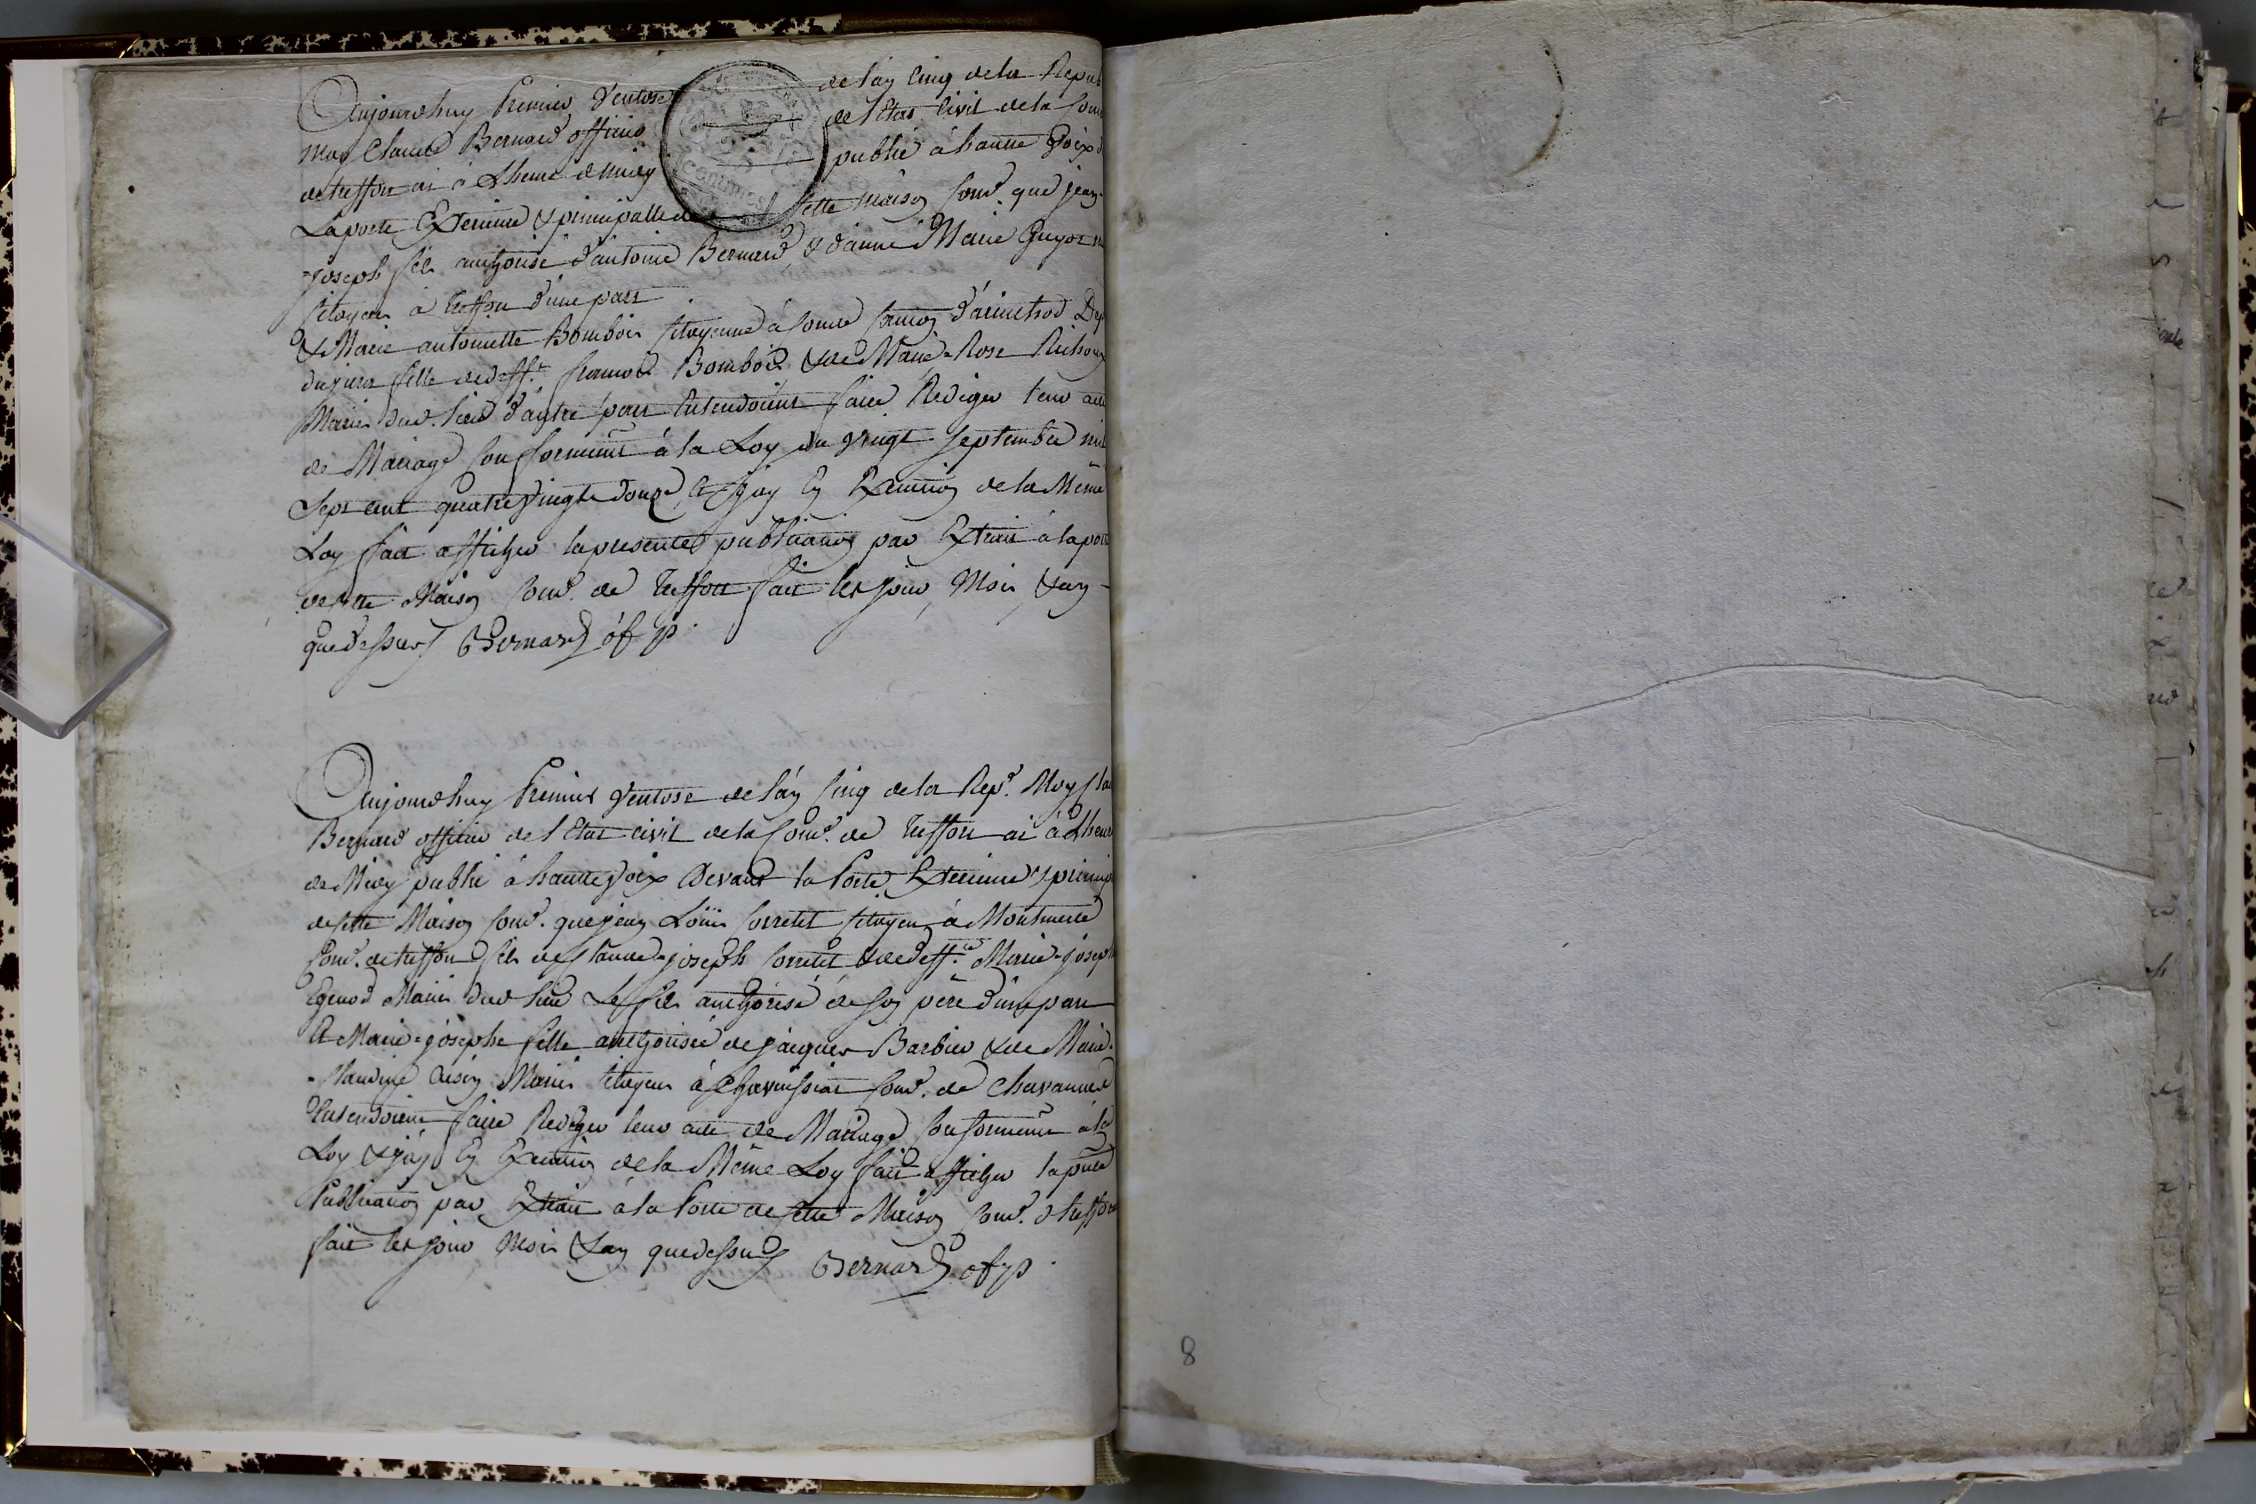 Aujourdhuy Premier Ventose de l'an Cinq de la Repub
moy Claude Bernard officier de l'Etat Civil de la Com
de treffort ai à L'heure de midy publié à haute Voix d
La porte Exterieure & principalle de cette maison Com. que jean
joseph fils authorisé d'antoine Bernard & d'anne Marie Guyot m
Citoyens à treffort d'une part
& Marie antoinette Bombois Citoyenne à Canton d'arinthod Dep
du jura fille de deff.t francois Bombois & de Marie-Rose
Mariés dud. Lieu d'autre part Entendoient faire Rediger leur acte
de Mariage Conformement à la Loy du Vingt Septembre mil
Sept cent quatre Vingt douze, & jay En Execution de la Même
Loy fait afficher la presente publication par Extrait à la porte
de cette Maison Com. de treffort fait les jour, Mois, & an
que dessus Bernard of. p.
CENTIMES
Aujourdhuy Premier Ventose de l'an Cinq de la Rep. Moy Cla
Bernard officier de l'Etat civil de la Com. de treffort ai à L'heure
de Midy publié à haute Voix Devant la Porte Exterieure & princip
de cette Maison Com. que jean Loüis Corretet Citoyen à Montmerle
Com. de treffort fils de Claude-joseph Corretet & de deff.te Marie-joseph
Mariés dud. Lieu Le fils authorisé de son père d'une part
& Marie-josephe fille authorisée de jacques Barbier & de Marie-
Claudine Mariés Citoyens à Chavussiat Com. de Chavannes
Entendoient faire Rediger leur acte de Mariage Conformement à la
Loy & jay En Execution de la Même Loy fait afficher la pnte
Publication par Extrait à la Porte de cette Maison Com. d treffort
fait les jour Mois & an que dessus Bernard of. p.
8